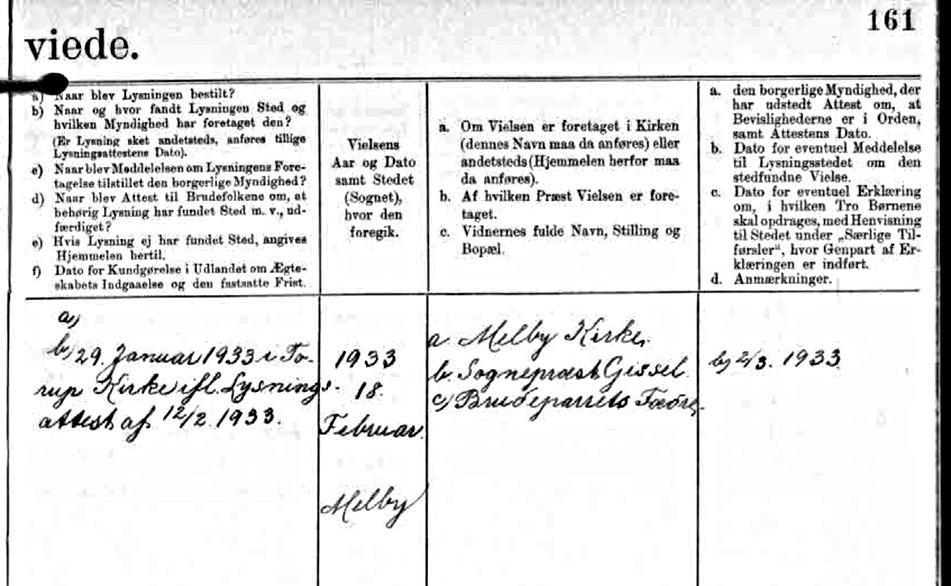 161
viede.
a) Naar blev Lysningen bestilt?
b) Naar og hvor fandt Lysningen Sted og
hvilken Myndighed har foretaget den?
(Er Lysning sket andetsteds, anføres tillige
Lysningsattestens Dato).
c) Naar blev Meddelelsen om Lysningens Fore-
tagelse tilstillet den borgerlige Myndighed?
d) Naar blev Attest til Brudefolkene om, at
behørig Lysning har fundet Sted m. v., ud-
færdiget?
e) Hvis Lysning ej har fundet Sted, angives
Hjemmelen hertil.
f) Dato for Kundgørelse i Udlandet om Ægte-
skabets Indgaaelse og den fastsatte Frist.
Vielsens
Aar og Dato
samt Stedet
(Sognet),
hvor den
foregik.
a. Om Vielsen er foretaget i Kirken
(dennes Navn maa da anføres) eller
andetsteds (Hjemmelen herfor maa
da anføres).
b. Af hvilken Præst Vielsen er fore-
taget.
c. Vidnernes fulde Navn, Stilling og
Bopæl.
a. den borgerlige Myndighed, der
har udstedt Attest om, at
Bevislighederne er i Orden,
samt Attestens Dato.
b. Dato for eventuel Meddelelse
til Lysningsstedet om den
stedfundne Vielse.
c. Dato for eventuel Erklæring
om, i hvilken Tro Børnene
skal opdrages, med Henvisning
til Stedet under „Særlige Til-
førsler“, hvor Genpart af Er-
klæringen er indført.
d. Anmærkninger.
a)
b) 29. Januar 1933 i To-
rup Kirke ifl. Lysnings-
attest af 12/2. 1933.
1933
18.
Februar.
Melby
a. Melby Kirke.
b. Sognepræst Gissel.
c) Brudeparrets Fædre.
b) 2/3. 1933